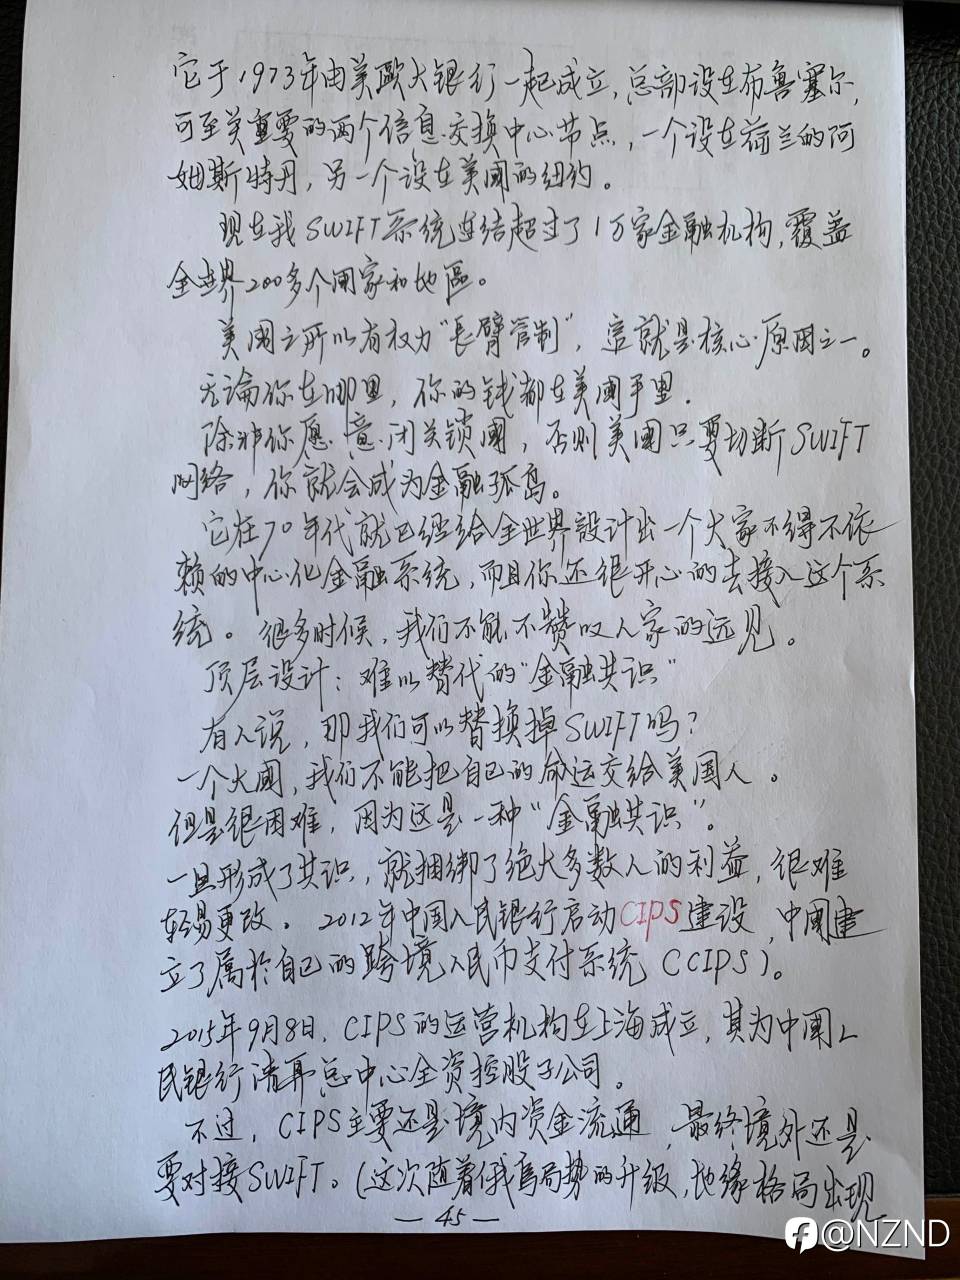 它于1973年由美歐大银行一起成立,总部设在布鲁塞尔,
可至关重要的两个信息交换中心节点,一个设在荷兰的阿
姆斯特丹,另一个设在美國的纽约。
现在我SWIFT系统连结超过了1万家金融机构,覆盖
全世界200多个國家和地區。
美國之所以有权力“長臂管制”,這就是核心原因之一。
无论你在哪里,你的钱都在美國手里.
除非你愿意闭关锁國,否则美國只要切断SWIFT
网络,你就会成为金融孤岛。
它在70年代就已經给全世界設计出一个大家不得不依
赖的中心化金融系统,而且你还很开心的去接入这个系
统。很多时候,我们不能不赞叹人家的远见。
顶层设计:难以替代的“金融共识”
有人说,那我们可以替换掉SWIFT吗?
一个大國,我们不能把自己的命运交给美国人。
但是很困难,因为这是一种“金融共识”。
一旦形成了共识,就捆绑了绝大多数人的利益,很难
轻易更改。2012年中国人民银行启动CIPS建设,中國建
立了属於自己的跨境人民币支付系统(CCIPS)。
2015年9月8日,CIPS的运营机构在上海成立,其为中國人
民银行清算总中心全资控股子公司。
不过,CIPS主要还是境内资金流通,最终境外还是
要对接SWIFT。(这次随着俄烏局势的升级,地缘格局出现
— 45 —
@NZND